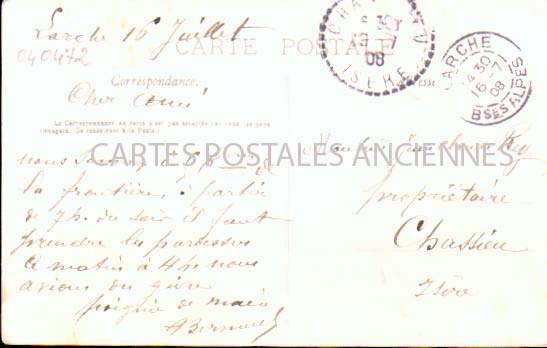 Larche 16 Juillet
040472
CARTE POSTALE
Correspondance
Cher ami
La Correspondance au recto n'est pas acceptée par tous les pays
étrangers. (Se renseigner à la Poste.)
nous sommes à
la frontière, à partir
de 7h. du soir il faut
prendre les pardessus
ce matin à 4h. nous
avions du givre
poignée de main
CARTES POSTALES ANCIENNES
ISÈRE
08
LARCHE
4 30
16 - 7
08
Bses ALPES
Monsieur
propriétaire
Chassieu
Isère